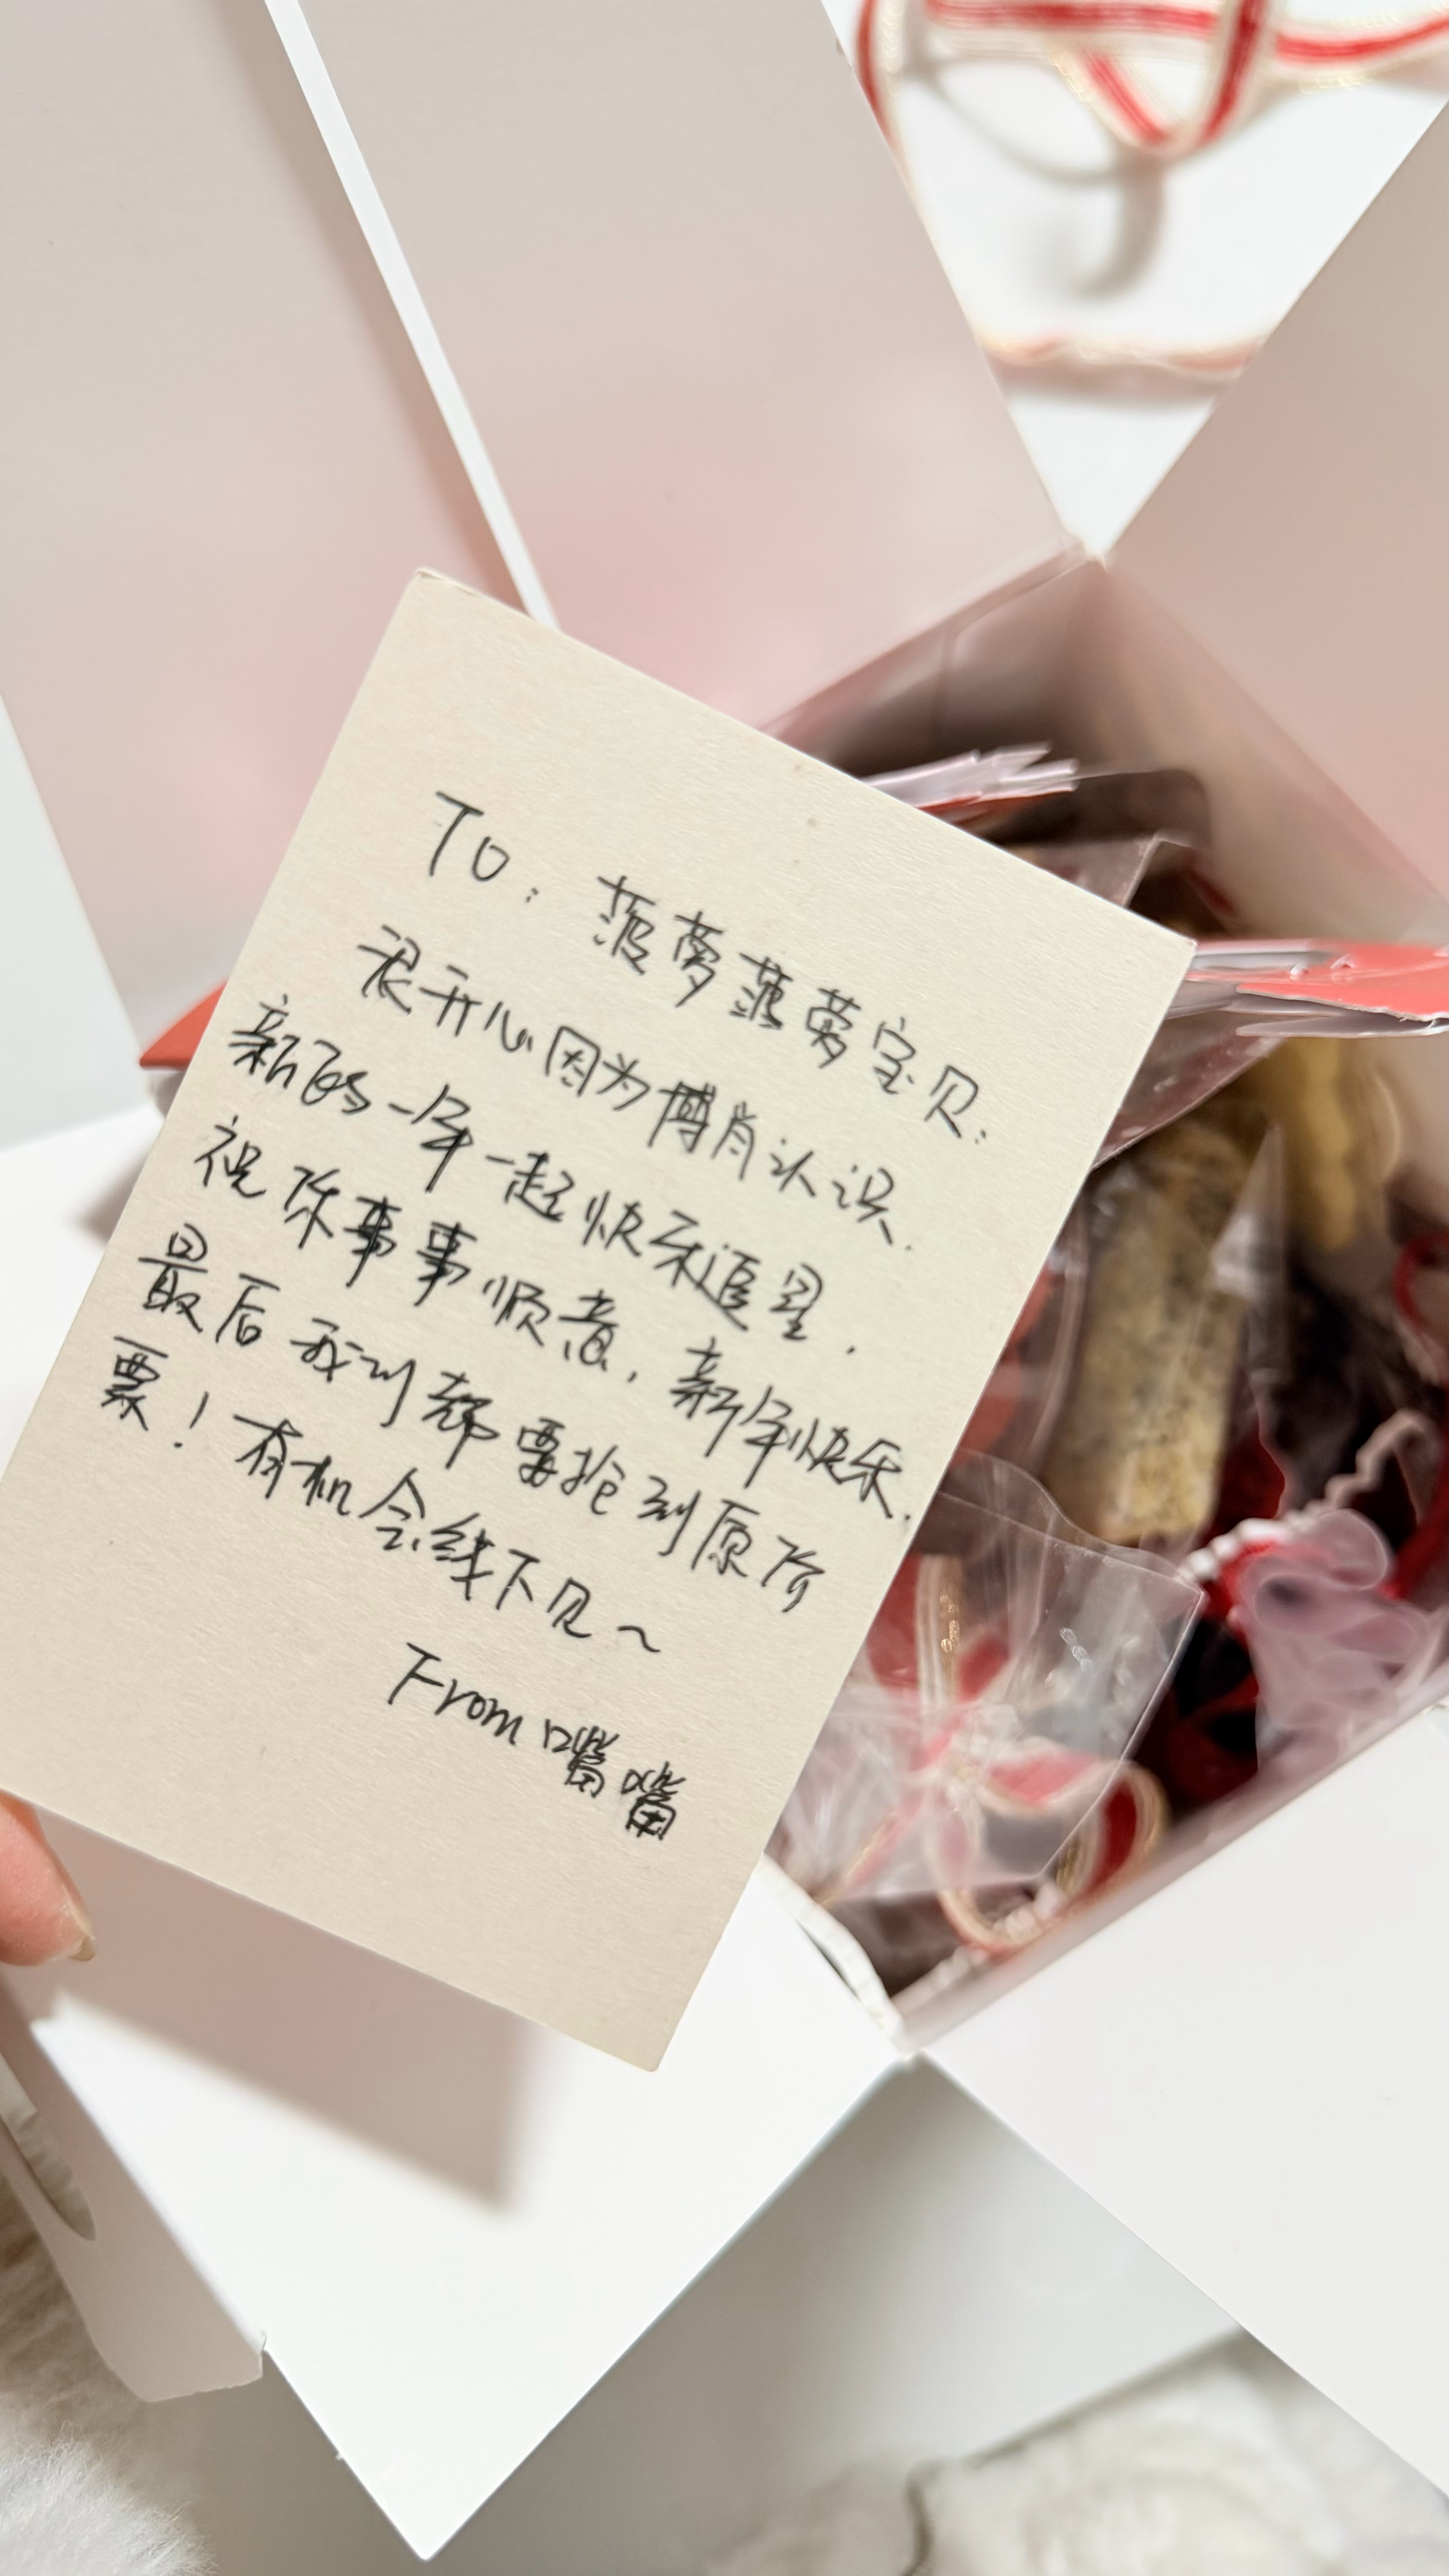 To：菠萝菠萝宝贝：
很开心因为博肖认识．
新的一年一起快乐追星．
祝你事事顺意，新年快乐．
最后我们都要抢到原价
票！有机会线下见～
From 嘴嘴